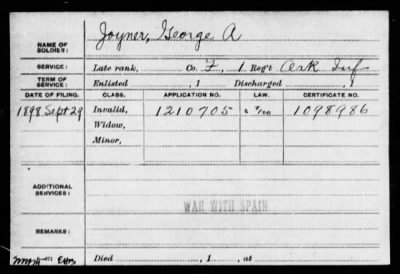 NAME OF SOLDIER: Joyner, George A
SERVICE: Late rank, Co. F, 1 Reg't Ark Inf
TERM OF SERVICE: Enlisted , 1 Discharged , 1
DATE OF FILING. CLASS. APPLICATION NO. LAW. CERTIFICATE NO.
1898 Sept 29 Invalid, 1210705 1098986
Widow,
Minor,
ADDITIONAL SERVICES:
WAR WITH SPAIN
REMARKS:
Died , 1 , at